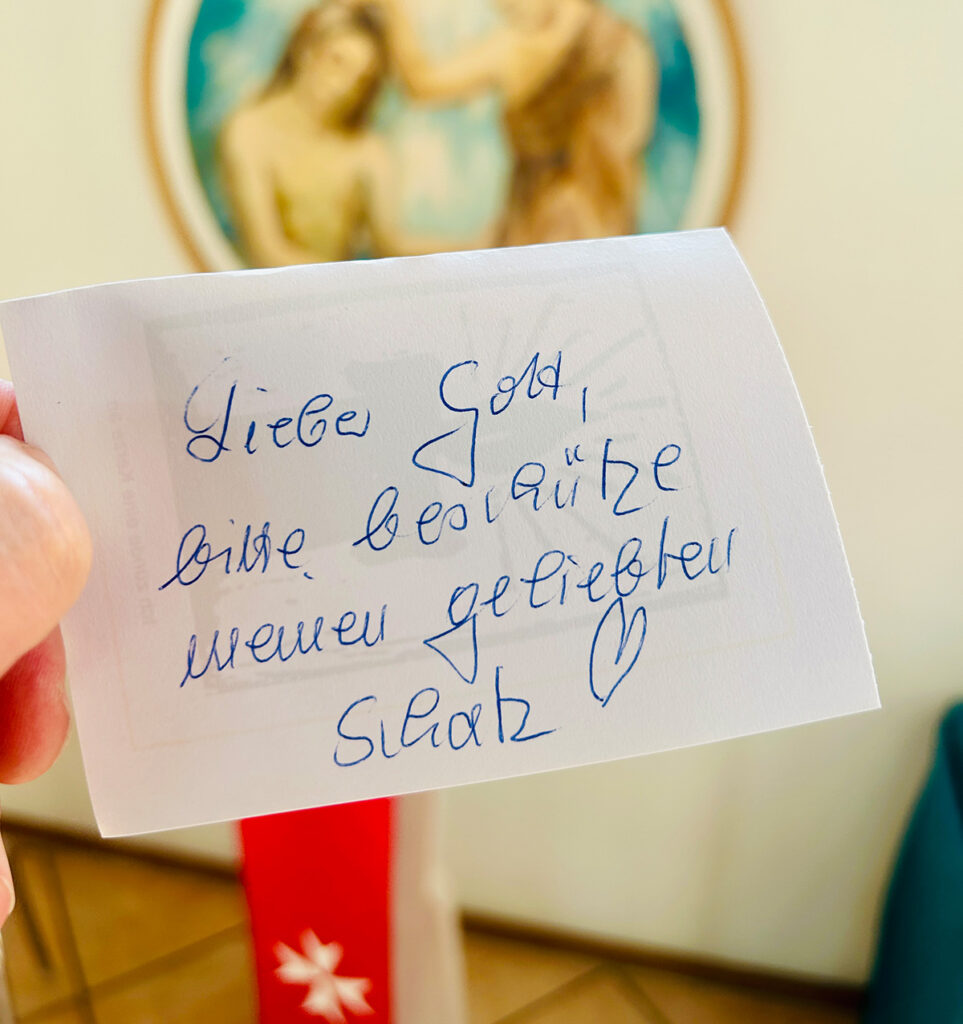 Lieber Gott,
bitte beschütze
meinen geliebten
Schatz